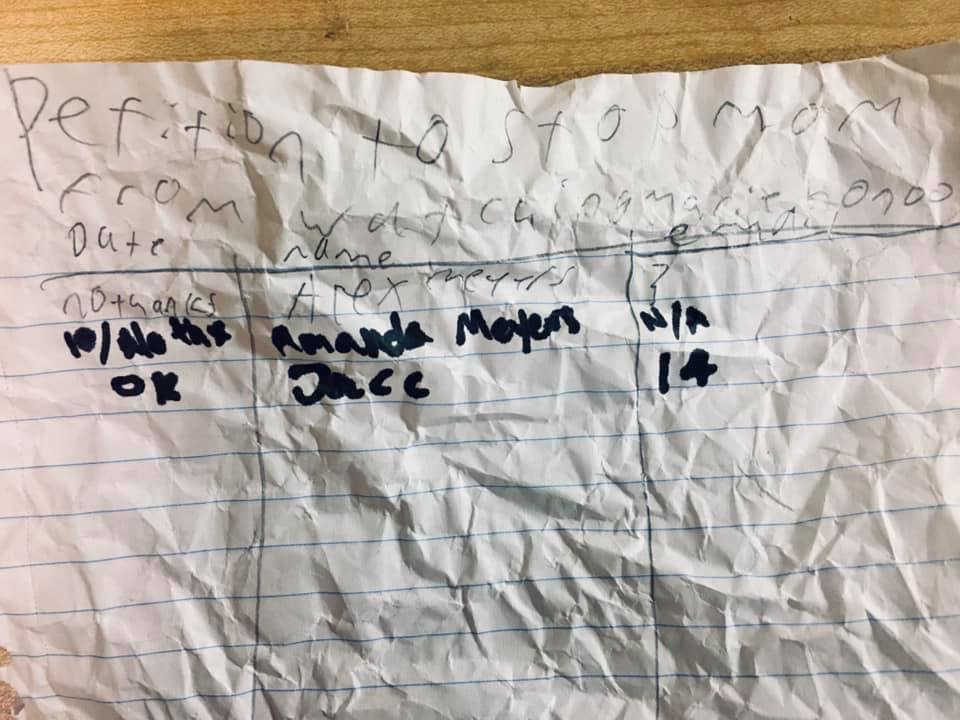 Petition to stop mom
from watching marie kondo
Date name email
no thanks Alex meyers ?
N/No thx Amanda Meyers N/A
OK Jacc 14